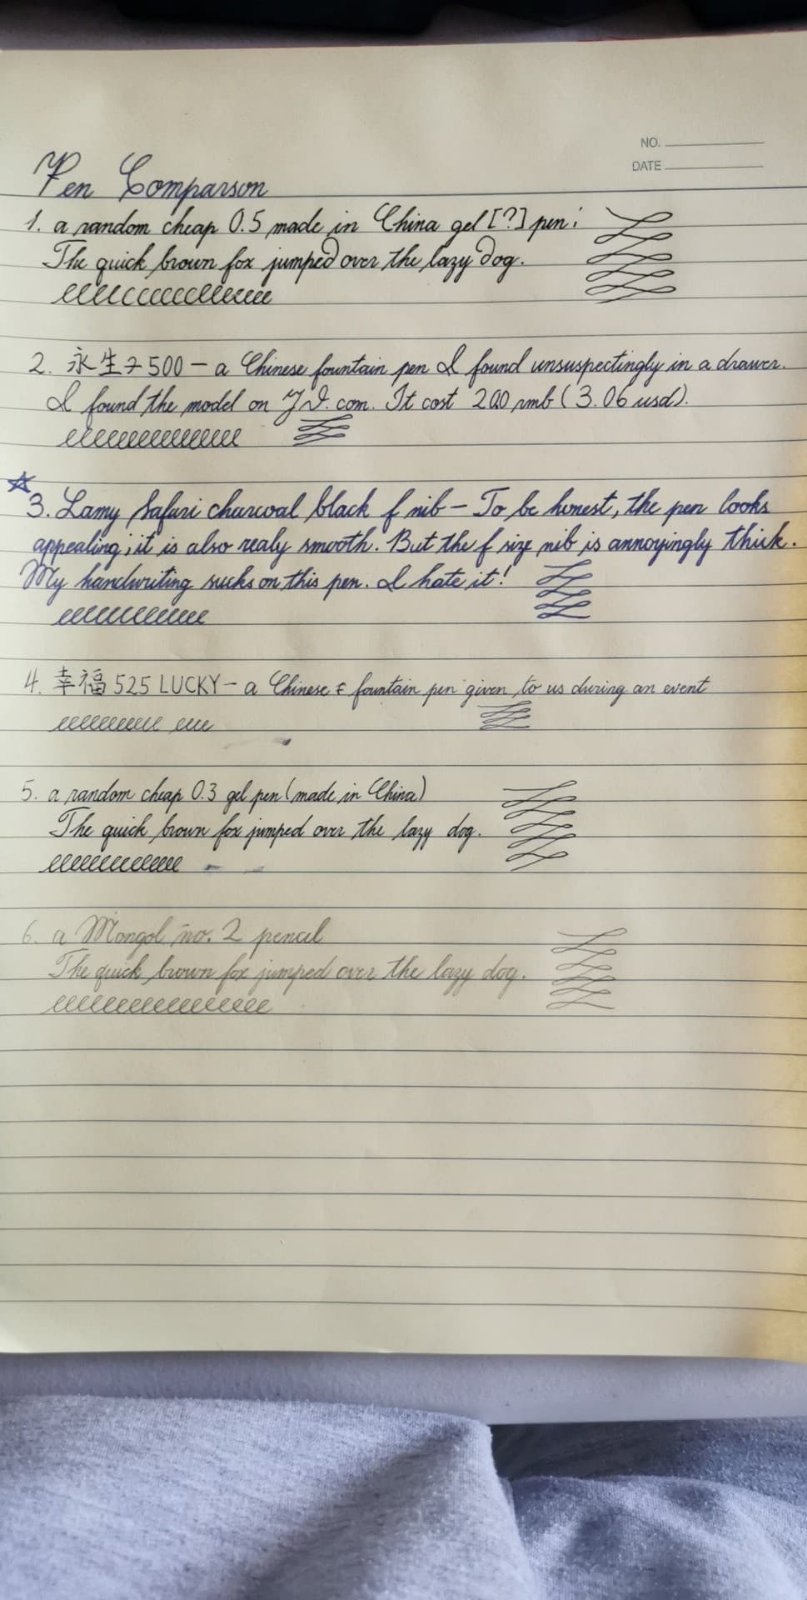 NO.
DATE
Pen Comparson
1. a random cheap 0.5 made in China gel [?] pen:
The quick brown fox jumped over the lazy dog.
2. 永生 7 500 – a Chinese fountain pen I found unsuspectingly in a drawer.
I found the model on JD.com. It cost 200 rmb (3.06 usd).
☆
3. Lamy Safari charcoal black f nib – To be honest, the pen looks
appealing; it is also realy smooth. But the f size nib is annoyingly thick.
My handwriting sucks on this pen. I hate it!
4. 幸福 525 LUCKY – a Chinese fountain pen given to us during an event
5. a random cheap 0.3 gel pen (made in China)
The quick brown fox jumped over the lazy dog.
6. a Mongol no. 2 pencil
The quick brown fox jumped over the lazy dog.